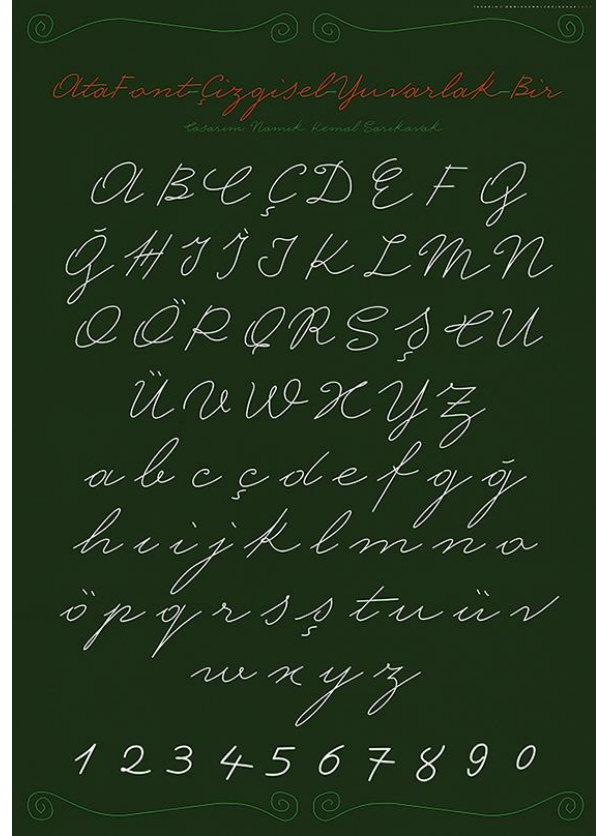 AtaFont-Çizgisel-Yuvarlak-Bir
tasarım Namık Kemal Sarıkavak
A B C Ç D E F G
Ğ H I İ J K L M N
O Ö P Q R S Ş T U
Ü V W X Y Z
a b c ç d e f g ğ
h ı i j k l m n o
ö p q r s ş t u ü v
w x y z
1 2 3 4 5 6 7 8 9 0